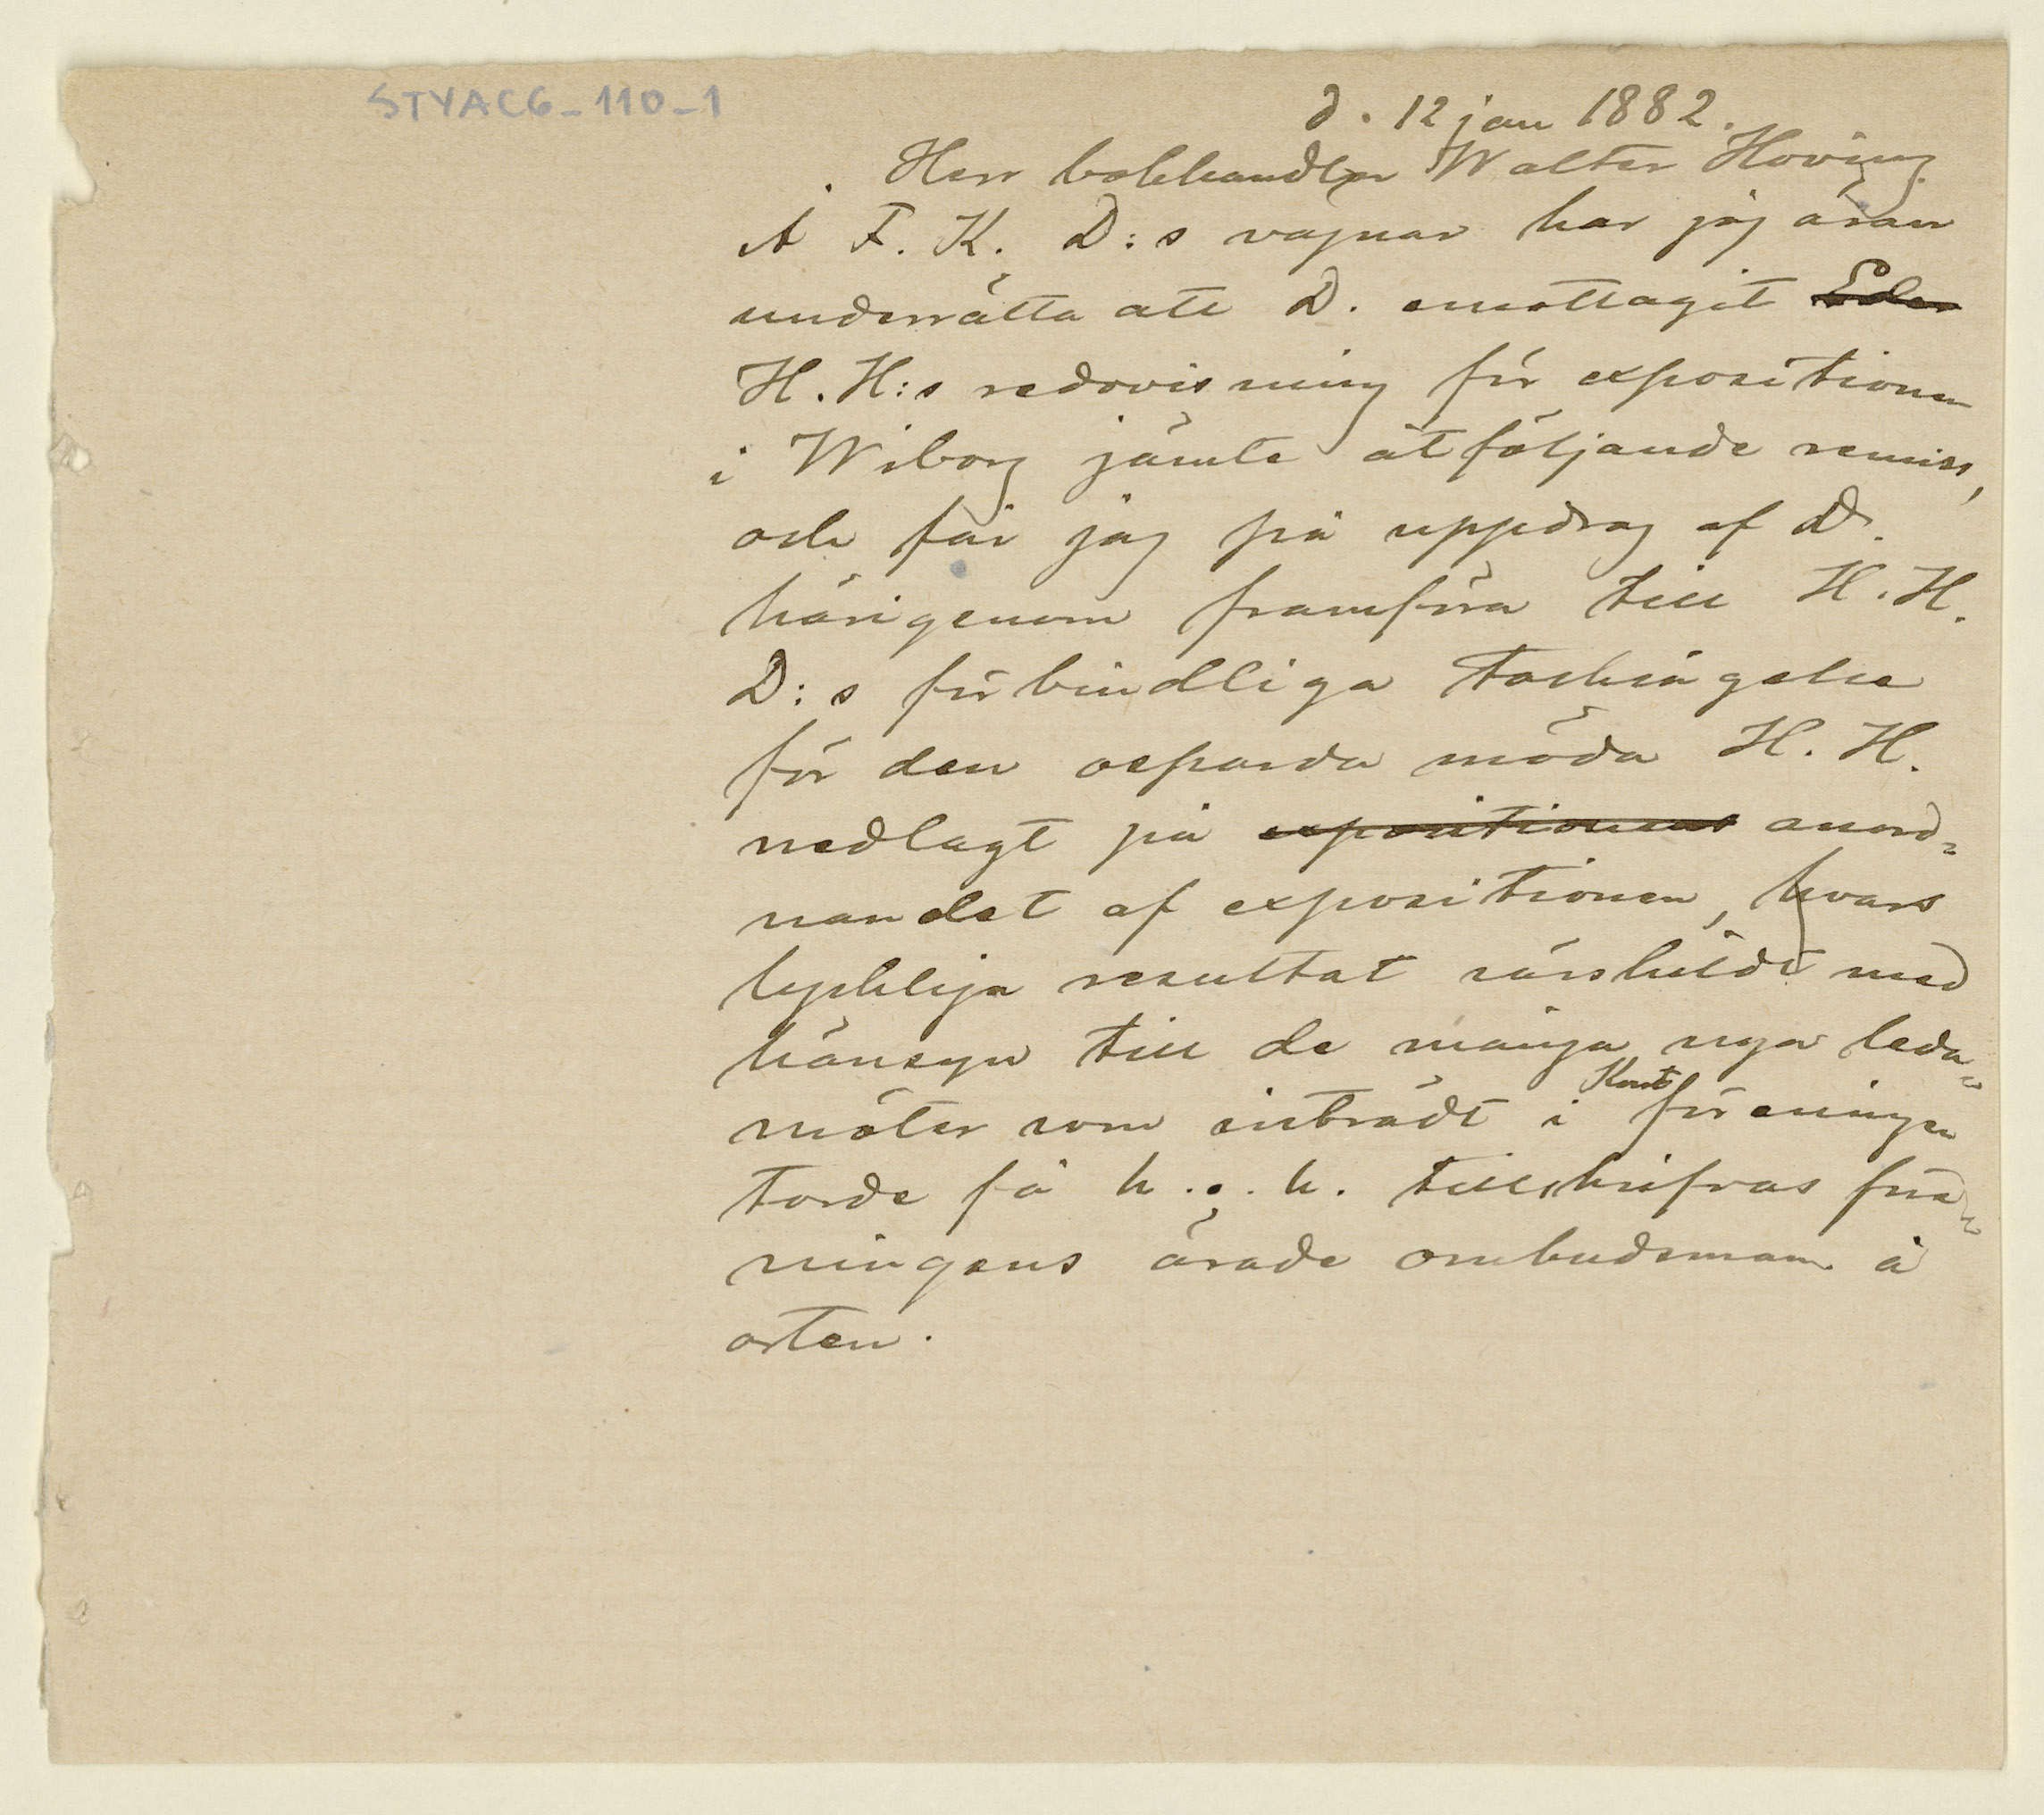 STYAC6_110_1
d. 12 jan 1882.
Herr bokhandlar Walter Hoving.
Å F. K. D:s vägnar har jag äran
underrätta att D. emottagit ~~Eder~~
H. H:s redovisning för expositionen
i Wiborg jämte åtföljande remiss,
och får jag på uppdrag af D.
härigenom framföra till H. H.
D:s förbindliga tacksägelse
för den osparda möda H. H.
nedlagt på ~~expositionens~~ anord-
nandet af expositionen, hvars
lyckliga resultat särskildt med
hänsyn till de många nya leda-
möter som inträdt i Konstföreningen
torde få h. o. h. tillskrifvas före-
ningens ärade ombudsman å
orten.